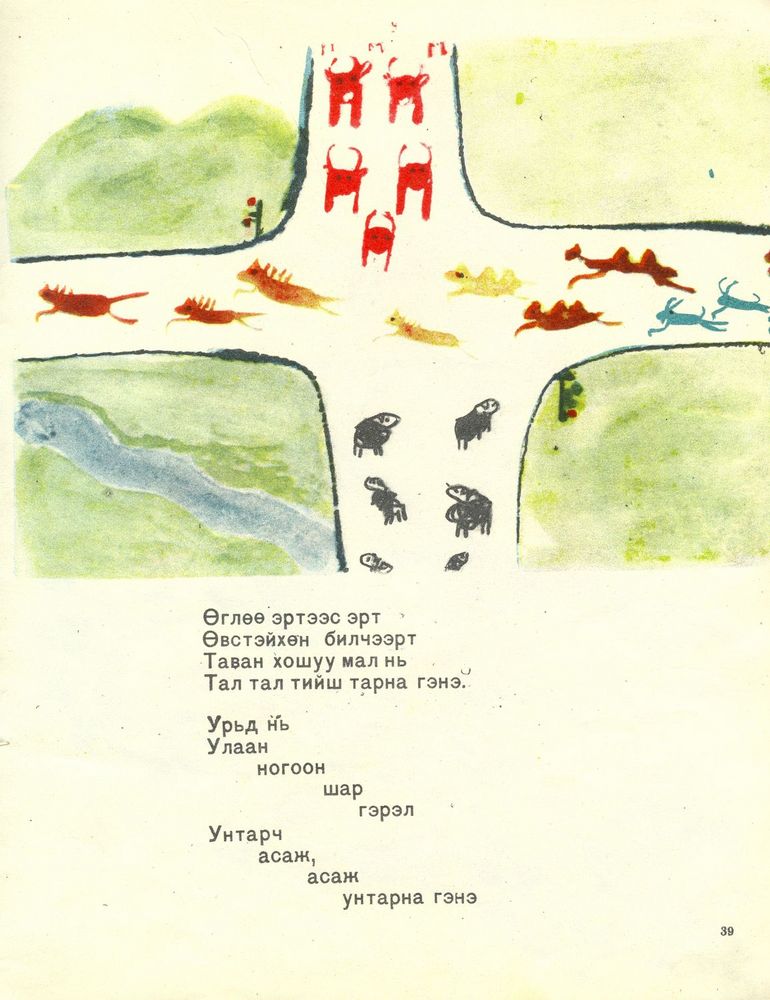 Өглөө эртээс эрт
Өвстэйхөн билчээрт
Таван хошуу мал нь
Тал тал тийш тарна гэнэ.
Урьд нь
Улаан
ногоон
шар
гэрэл
Унтарч
асаж,
асаж
унтарна гэнэ
39